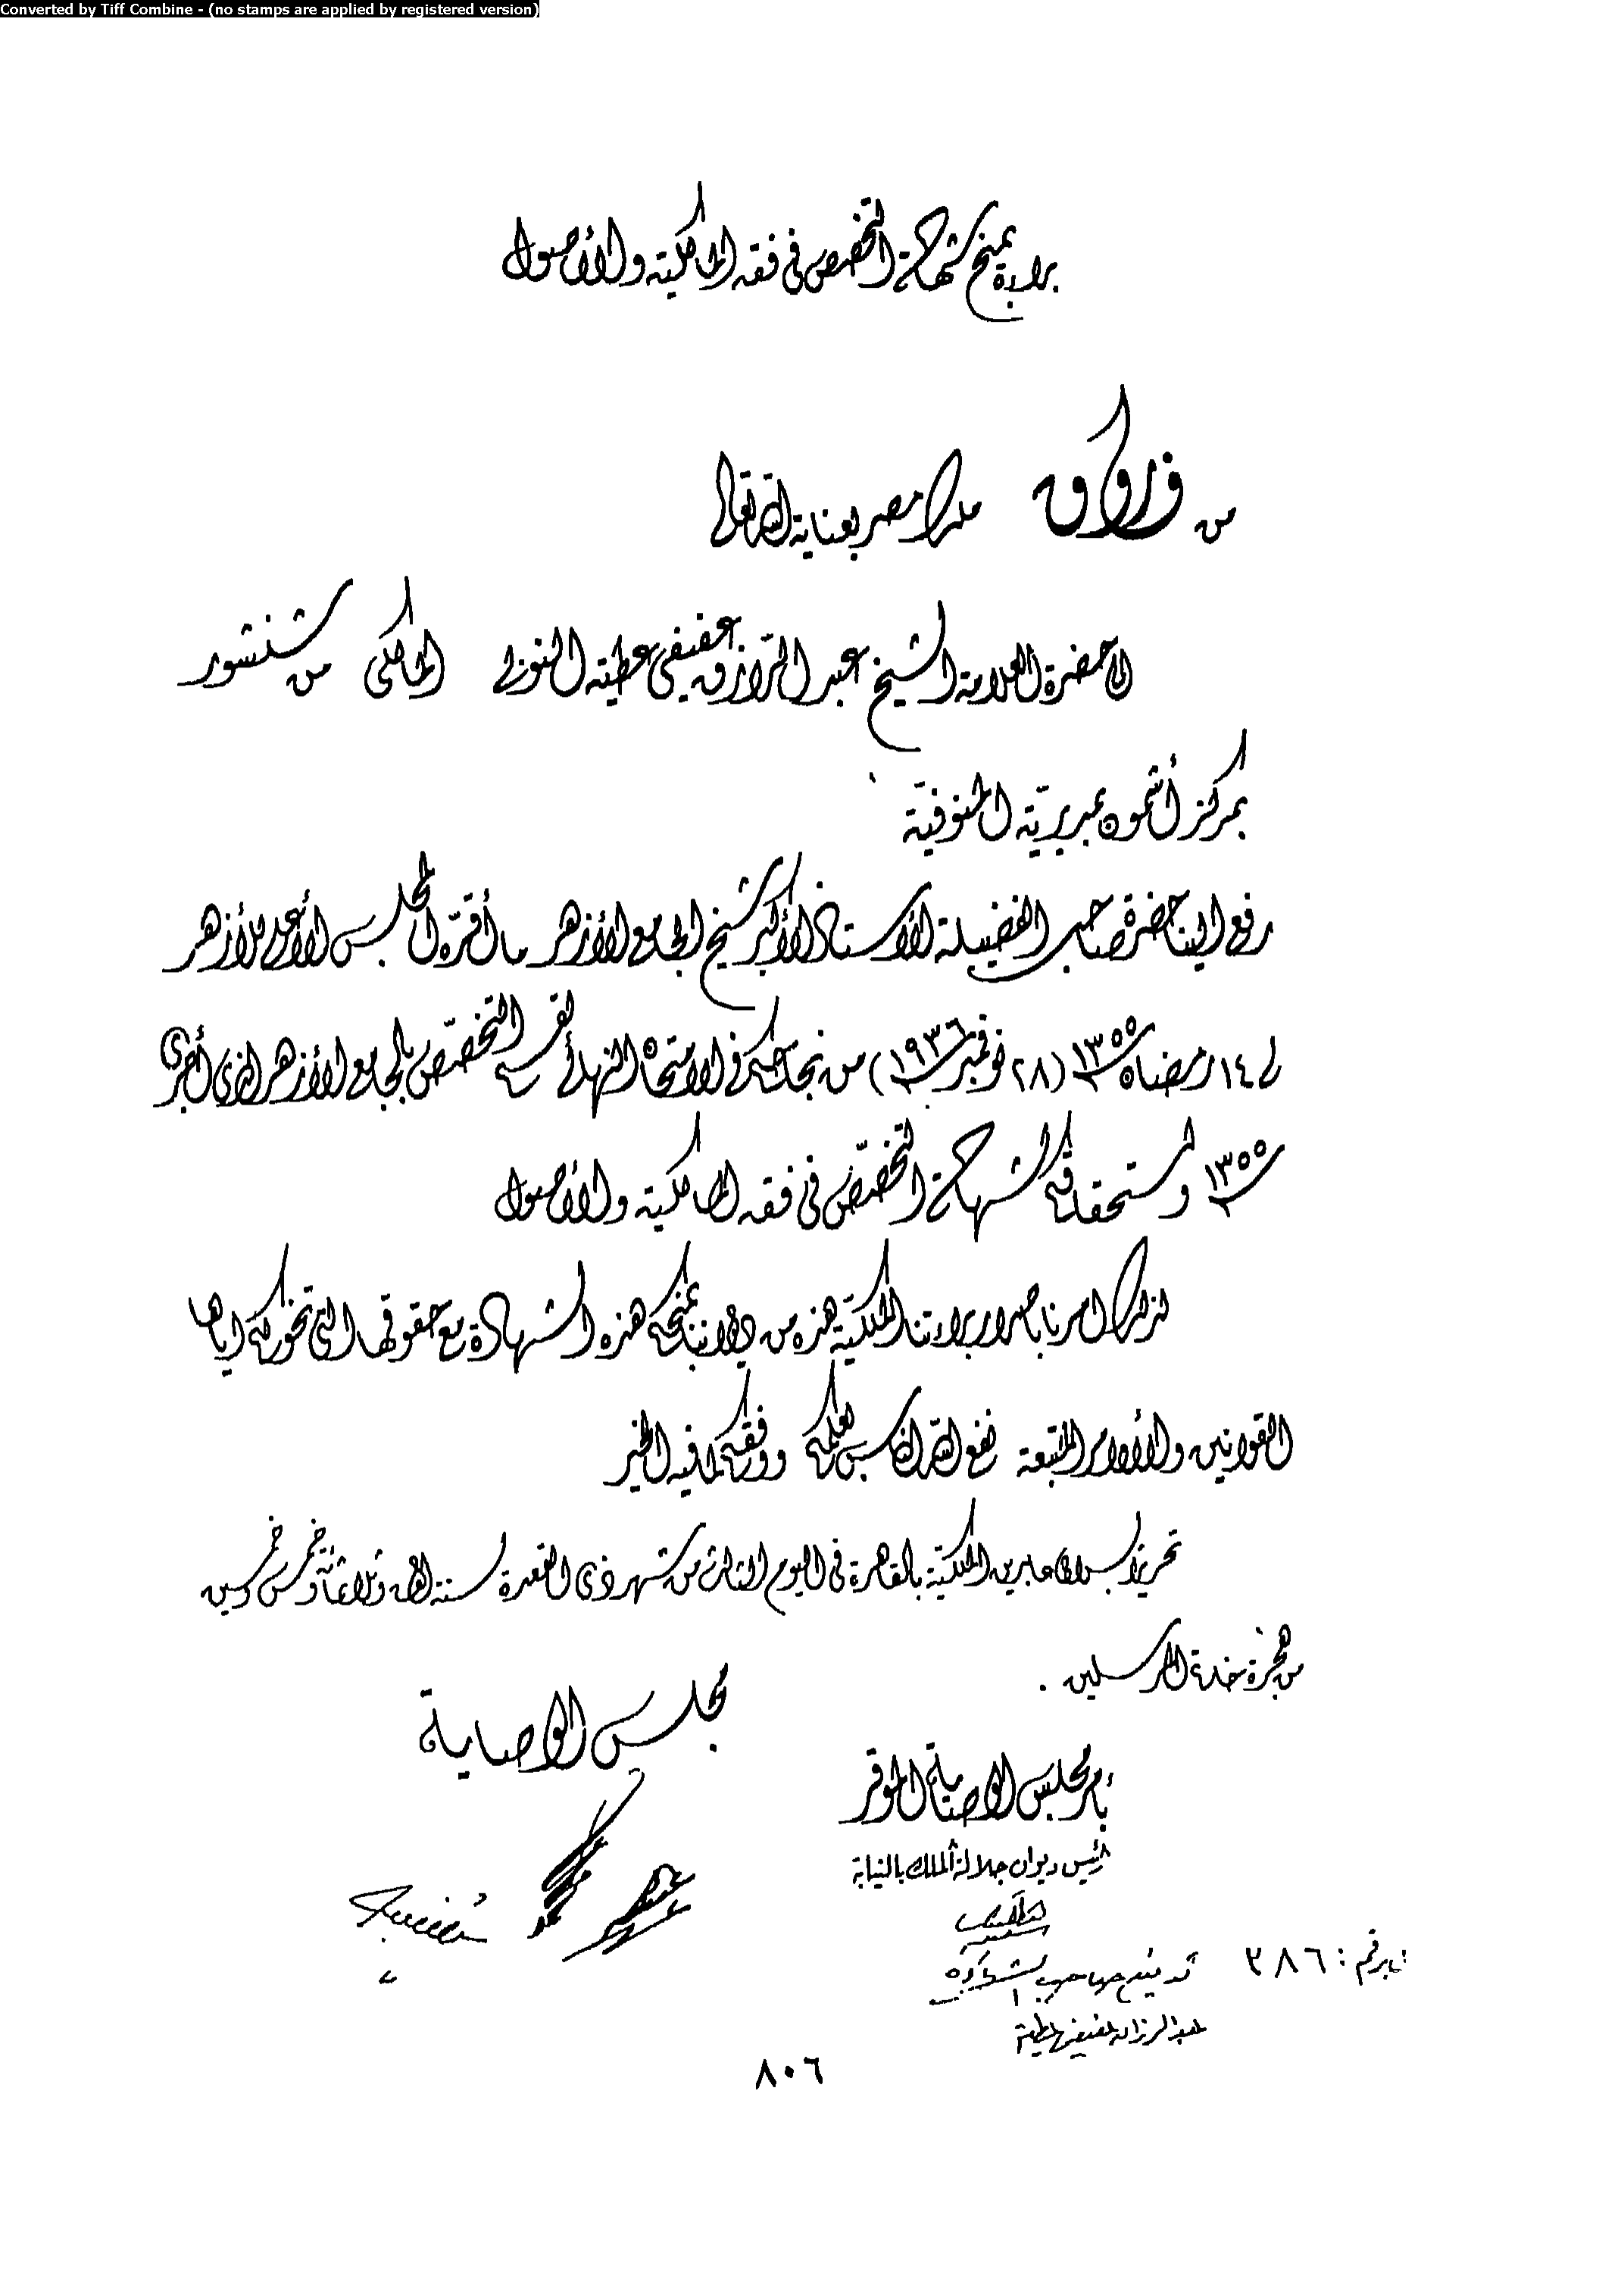 Converted by Tiff Combine - (no stamps are applied by registered version)
براءة بمنح شهادة التخصص في فقه المالكية والأصول
من فاروق ملك مصر بعناية الله تعالى
الى حضرة العلامة الشيخ عبد الرازق عفيفى عطية النوبى المالكى من شنشور
بمركز أشمون بمديرية المنوفية
رفع الينا حضرة صاحب الفضيلة الأستاذ الأكبر شيخ الجامع الأزهر ما أقره المجلس الأعلى للأزهر
فى ١٤ رمضان سنة ١٣٥٥ (٢٨ نوفمبر سنة ١٩٣٦) من نجاحكم فى الامتحان النهائى لقسم التخصص بالجامع الأزهر الذى أجرى
سنة ١٣٥٥ واستحقاقكم لشهادة التخصص فى فقه المالكية والأصول
لذلك أمرنا باصدار براءتنا الملكية هذه من ديواننا بمنحكم هذه الشهادة مع حقوقها التى تخولكم اياها
القوانين والأوامر المتبعة نفع الله الناس بعلمكم ووفقكم لما فيه الخير
تحريرا بسراى عابدين الملكية بالقاهرة فى اليوم الثالث من شهر ذى القعدة لسنة الف وثلاثمائة وخمس وخمسين
من هجرة خاتم المرسلين .
مجلس الوصاية
بأمر مجلس الوصاية الموقر
رئيس ديوان جلالة الملك بالنيابة
برقم : ٣٨٦
عبد الرزاق عفيفى عطية
٨٠٦